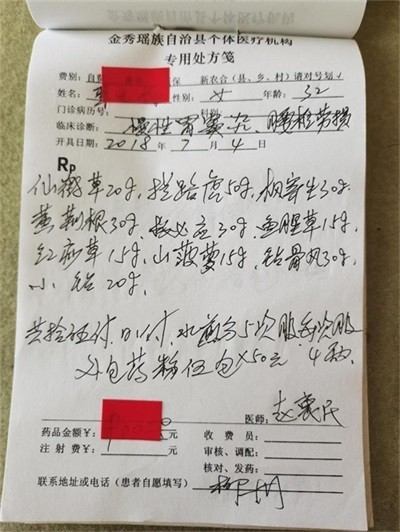 金秀瑶族自治县个体医疗机构
专用处方笺
费别：自费 保 新农合（县、乡、村）请对号划√
姓名： 性别： 女 年龄：32
门诊病历号：
临床诊断： 慢性胃窦炎、腰椎劳损
开具日期：2018年7月4日
Rp
仙鹤草20g、拦路虎50g、枫寄生30g、
黄荆根30g、救必应30g、鱼腥草15g、
红痧草15g、山菠萝15g、钻骨风30g、
小钻20g、
共拾伍付、日1付、水煎分5次服每次服
外包药粉伍包×50元 4
医师：赵襄民
药品金额￥： 元 收费员：
注射费￥： 元 审核、调配：
核对、发药：
联系地址或电话（患者自愿填写） 柳州